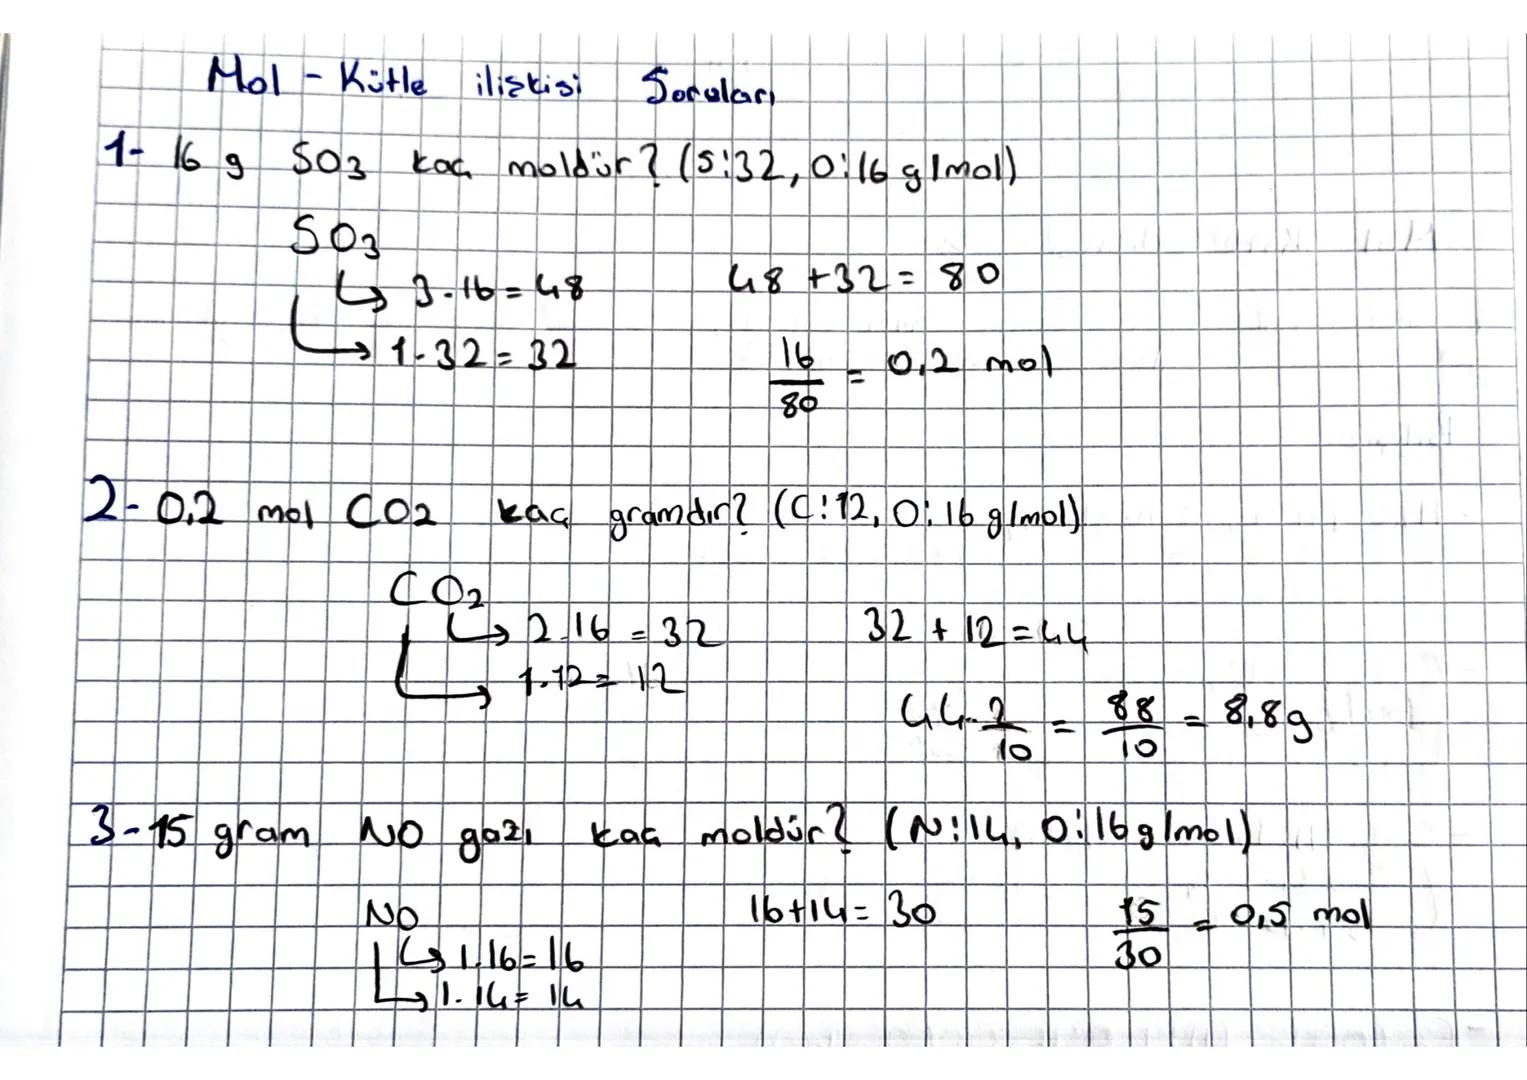 Mol - Kütle ilişkisi Soruları
1- 16 g SO3 kaç moldür? (S:32, O:16 g/mol)
SO3
3.16 = 48
48 + 32 = 80
1.32 = 32
16/80 = 0,2 mol
2- 0,2 mol CO2 kaç gramdır? (C:12, O:16 g/mol)
CO2
2.16 = 32
32 + 12 = 44
1.12 = 12
44.2/10 = 88/10 = 8,8g
3- 15 gram NO gazı kaç moldür? (N:14, O:16g/mol)
NO
16+14 = 30
15/30 = 0,5 mol
1.16 = 16
1.14 = 14